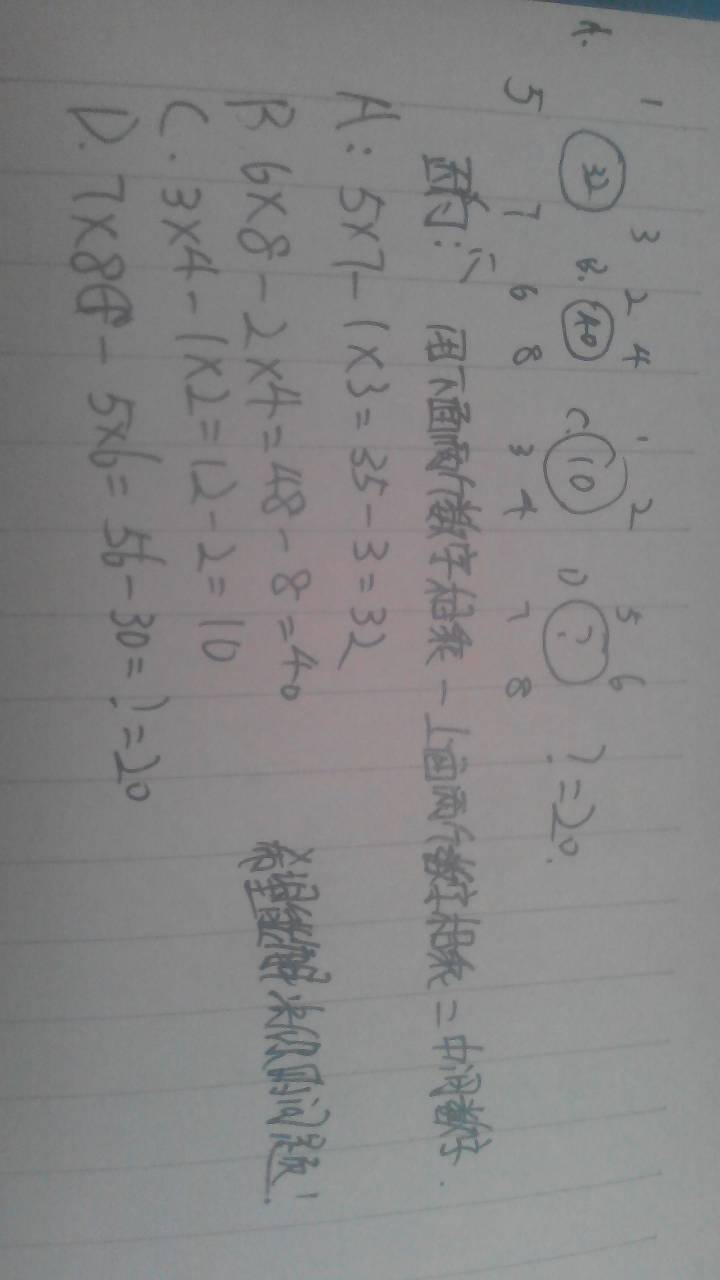 1 3 2 4 1 2 5 6
A. 32 B. 40 C. 10 D ? ?=20.
5 7 6 8 3 4 7 8
用下面两个数字相乘-上面两个数字相乘=中间数字.
A: 5×7-1×3=35-3=32
B 6×8-2×4=48-8=40
C. 3×4-1×2=12-2=10
D. 7×8-5×6=56-30=?=20
希望能解决你的问题!